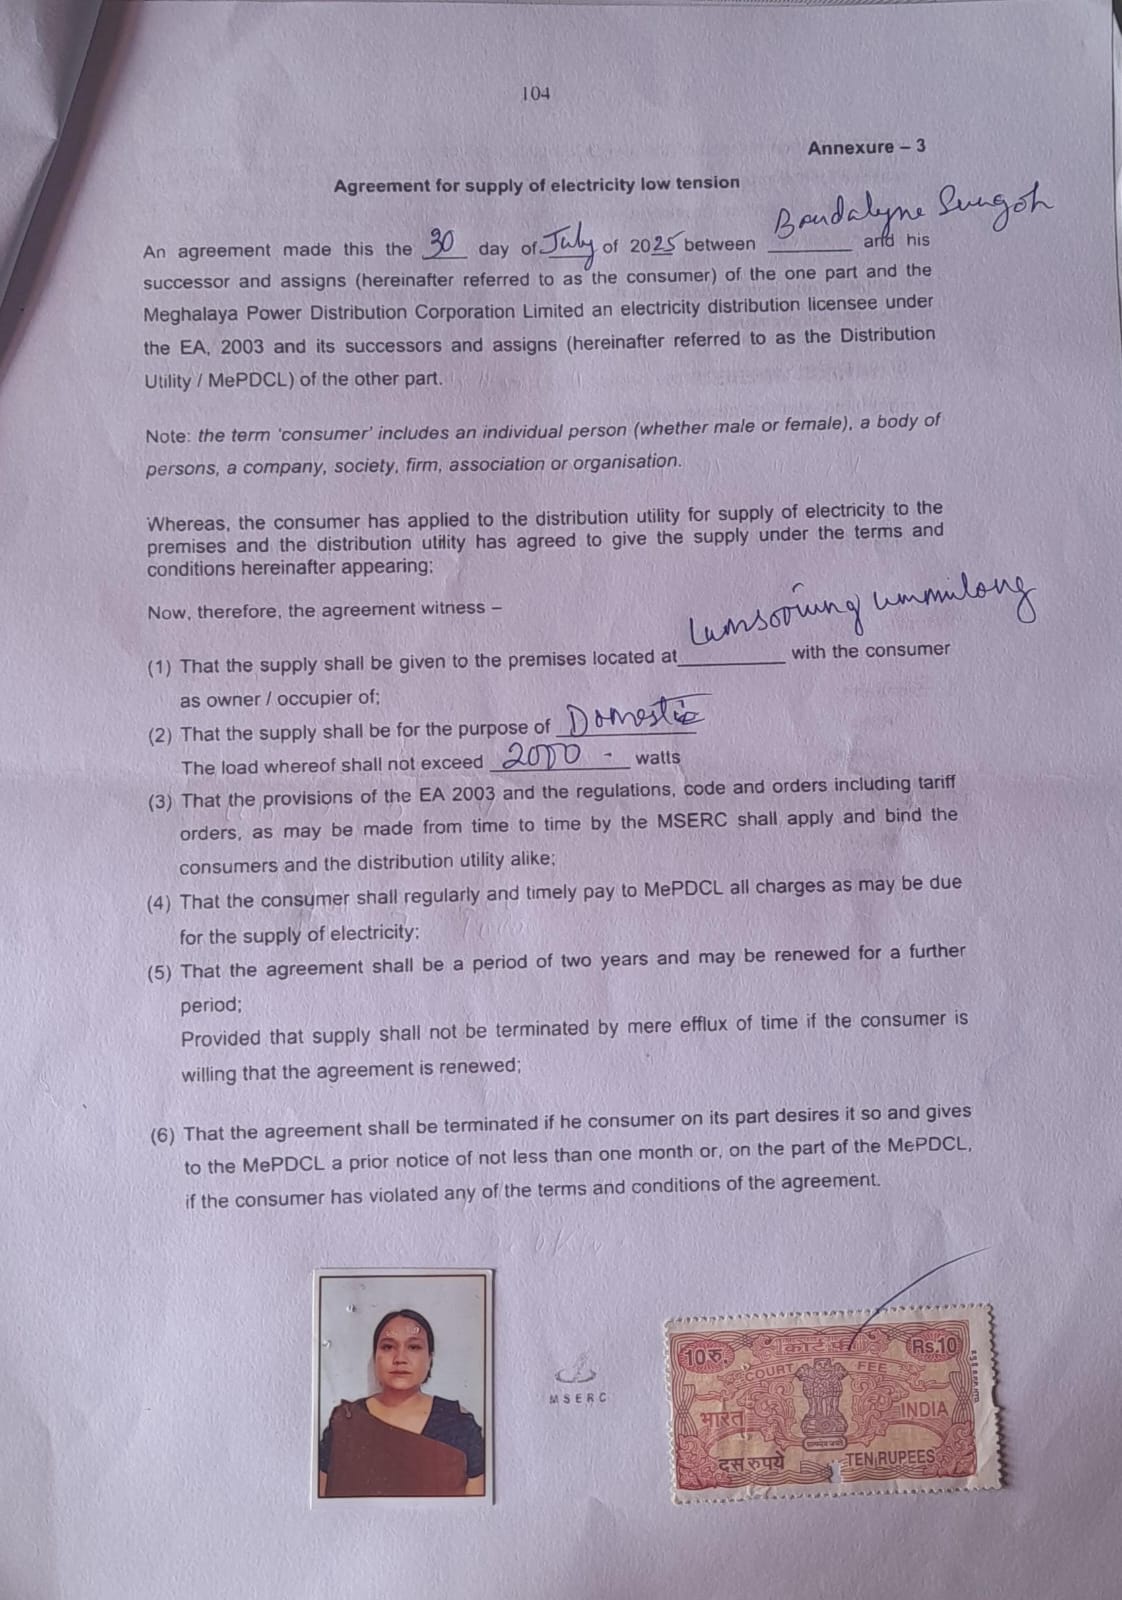 104
Annexure – 3
Agreement for supply of electricity low tension
An agreement made this the 30 day of July of 2025 between Bandalyne Sungoh and his
successor and assigns (hereinafter referred to as the consumer) of the one part and the
Meghalaya Power Distribution Corporation Limited an electricity distribution licensee under
the EA, 2003 and its successors and assigns (hereinafter referred to as the Distribution
Utility / MePDCL) of the other part.
Note: the term ‘consumer’ includes an individual person (whether male or female), a body of
persons, a company, society, firm, association or organisation.
Whereas, the consumer has applied to the distribution utility for supply of electricity to the
premises and the distribution utility has agreed to give the supply under the terms and
conditions hereinafter appearing:
Now, therefore, the agreement witness –
(1) That the supply shall be given to the premises located at with the consumer
as owner / occupier of;
(2) That the supply shall be for the purpose of Domestic
The load whereof shall not exceed 2000 - watts
(3) That the provisions of the EA 2003 and the regulations, code and orders including tariff
orders, as may be made from time to time by the MSERC shall apply and bind the
consumers and the distribution utility alike;
(4) That the consumer shall regularly and timely pay to MePDCL all charges as may be due
for the supply of electricity;
(5) That the agreement shall be a period of two years and may be renewed for a further
period;
Provided that supply shall not be terminated by mere efflux of time if the consumer is
willing that the agreement is renewed;
(6) That the agreement shall be terminated if he consumer on its part desires it so and gives
to the MePDCL a prior notice of not less than one month or, on the part of the MePDCL,
if the consumer has violated any of the terms and conditions of the agreement.
MSERC
10रु. कोर्ट फीस Rs.10
COURT FEE
भारत INDIA
दस रुपये TEN RUPEES